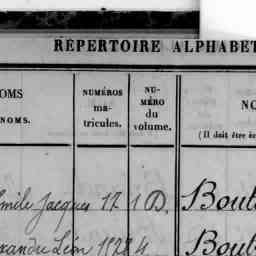 RÉPERTOIRE ALPHABET
OMS
NOMS.
NUMÉROS
ma-
tricules.
NU-
MÉRO
du
volume.
NO
(Il doit être éc
mile Jacques 17 1 D. Bout
xandre Léon 1928 4 Boul